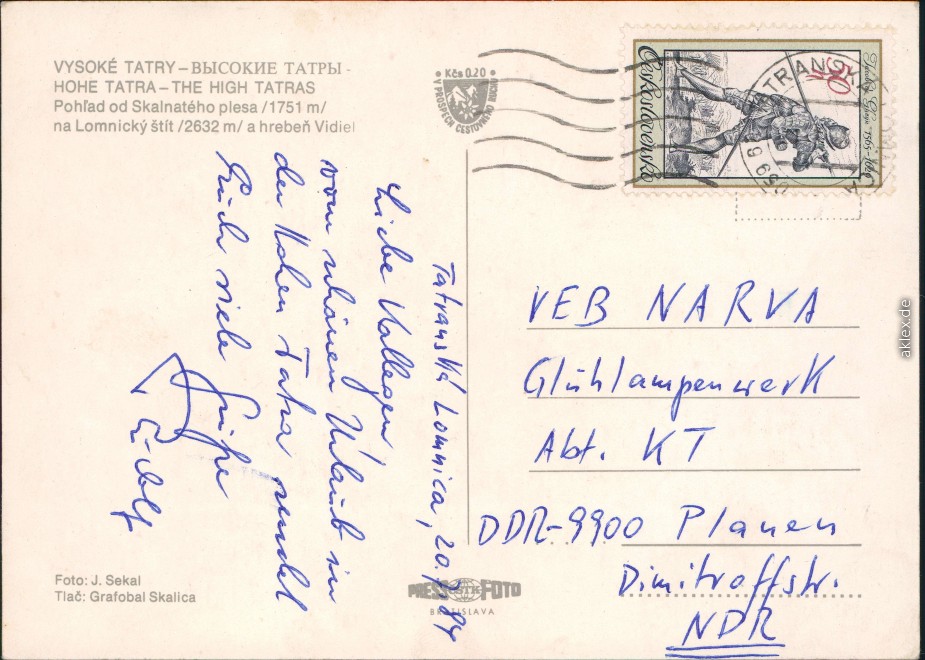 VYSOKÉ TATRY – ВЫСОКИЕ ТАТРЫ -
HOHE TATRA – THE HIGH TATRAS
Pohľad od Skalnatého plesa /1751 m/
na Lomnický štít /2632 m/ a hrebeň Vidiel
Kčs 0.20
V PROSPECH CESTOVNÉHO RUCHU
Československo
50
Tatranská Lomnica, 20.7.84
Liebe Kollegen,
vom schönen Urlaub in
der Hohen Tatra sendet
Euch viele Grüße
VEB NARVA
Glühlampenwerk
Abt. KT
DDR-9900 Plauen
Dimitroffstr.
NDR
Foto: J. Sekal
Tlač: Grafobal Skalica
PRESS FOTO
BRATISLAVA
aklex.de